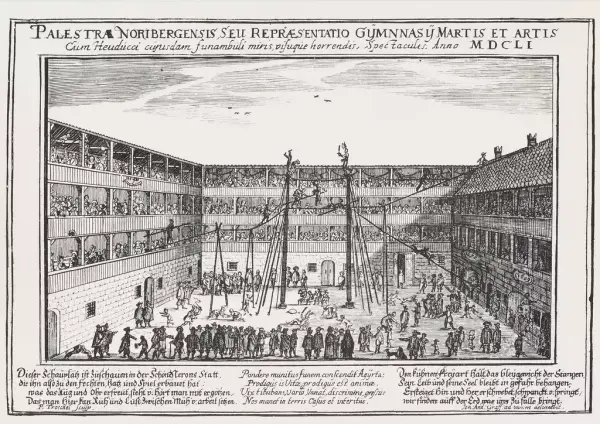 PALESTRÆ NORIBERGENSIS SEU REPRÆSENTATIO GYMNASIJ MARTIS ET ARTIS
Cum Heuducci cujusdam funambuli miris, visuque horrendis, Spectaculis. Anno MDCLI
Dieser Schauplatz ist Zuschauen in der Schönst Norens Statt,
die ihn also zu den fechten, Hatz und Spiel erbauet hat.
was das Aug und Ohr erfreuet, sieht v. hört man mit ergötzen,
Das man hier kan Ruh und Lust zwischen Müh v. arbeit setzen.
P. Troschel sculp.
Pondere munitus funem conscendit Agyrta:
Prodigus is Vitæ, prodigus est animæ.
Vix titubans, Vario, Vanas, discrimine, gressus
Nos manet in terris Casus et interitus.
Den kühnen Freyart hält das bleygewicht der Stangen
Sein Leib und seine Seel bleibt in gefahr behangen,
Er steiget hin und her, er schwebet, schwanckt v. springt,
wir finden auff der Erd was uns zu falle bringt.
Joh. And. Graff ad vivum delineabat.